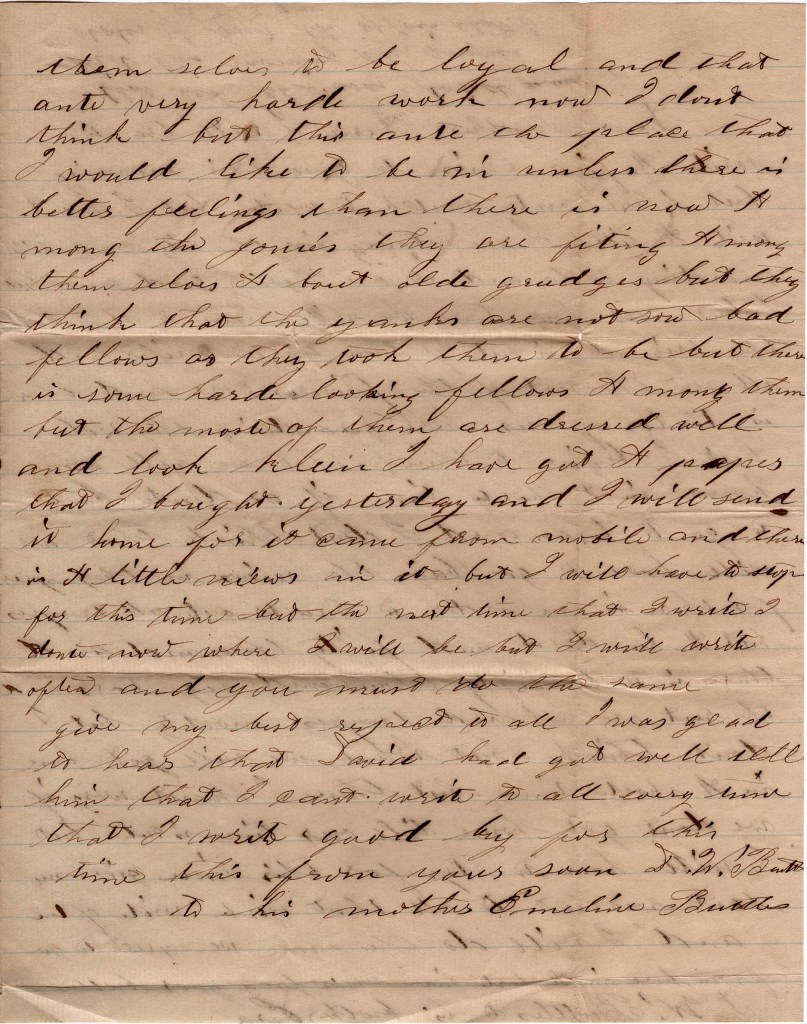 them selves to be loyal and that
ante very harde work now I dont
think but this ante the place that
I would like to be in unless there is
better feelings than there is now A
mong the jonies they are fiting A mong
them selves A bout olde grudges but they
think that the yanks are not sow bad
fellows as they took them to be but there
is some harde looking fellows A mong them
but the moste of them are dressed well
and look kleen I have got A paper
that I bought yesterday and I will send
it home for it came from mobile and there
is A little niews in it but I will have to stop
for this time but the next time that I write I
donte now where I will be but I will write
often and you must do the same
give my best respect to all I was glad
to hear that David had got well tell
him that I cant write to all every time
that I write good by for this
time this from your soon D. W. Butt
to his mother Emeline Buttles